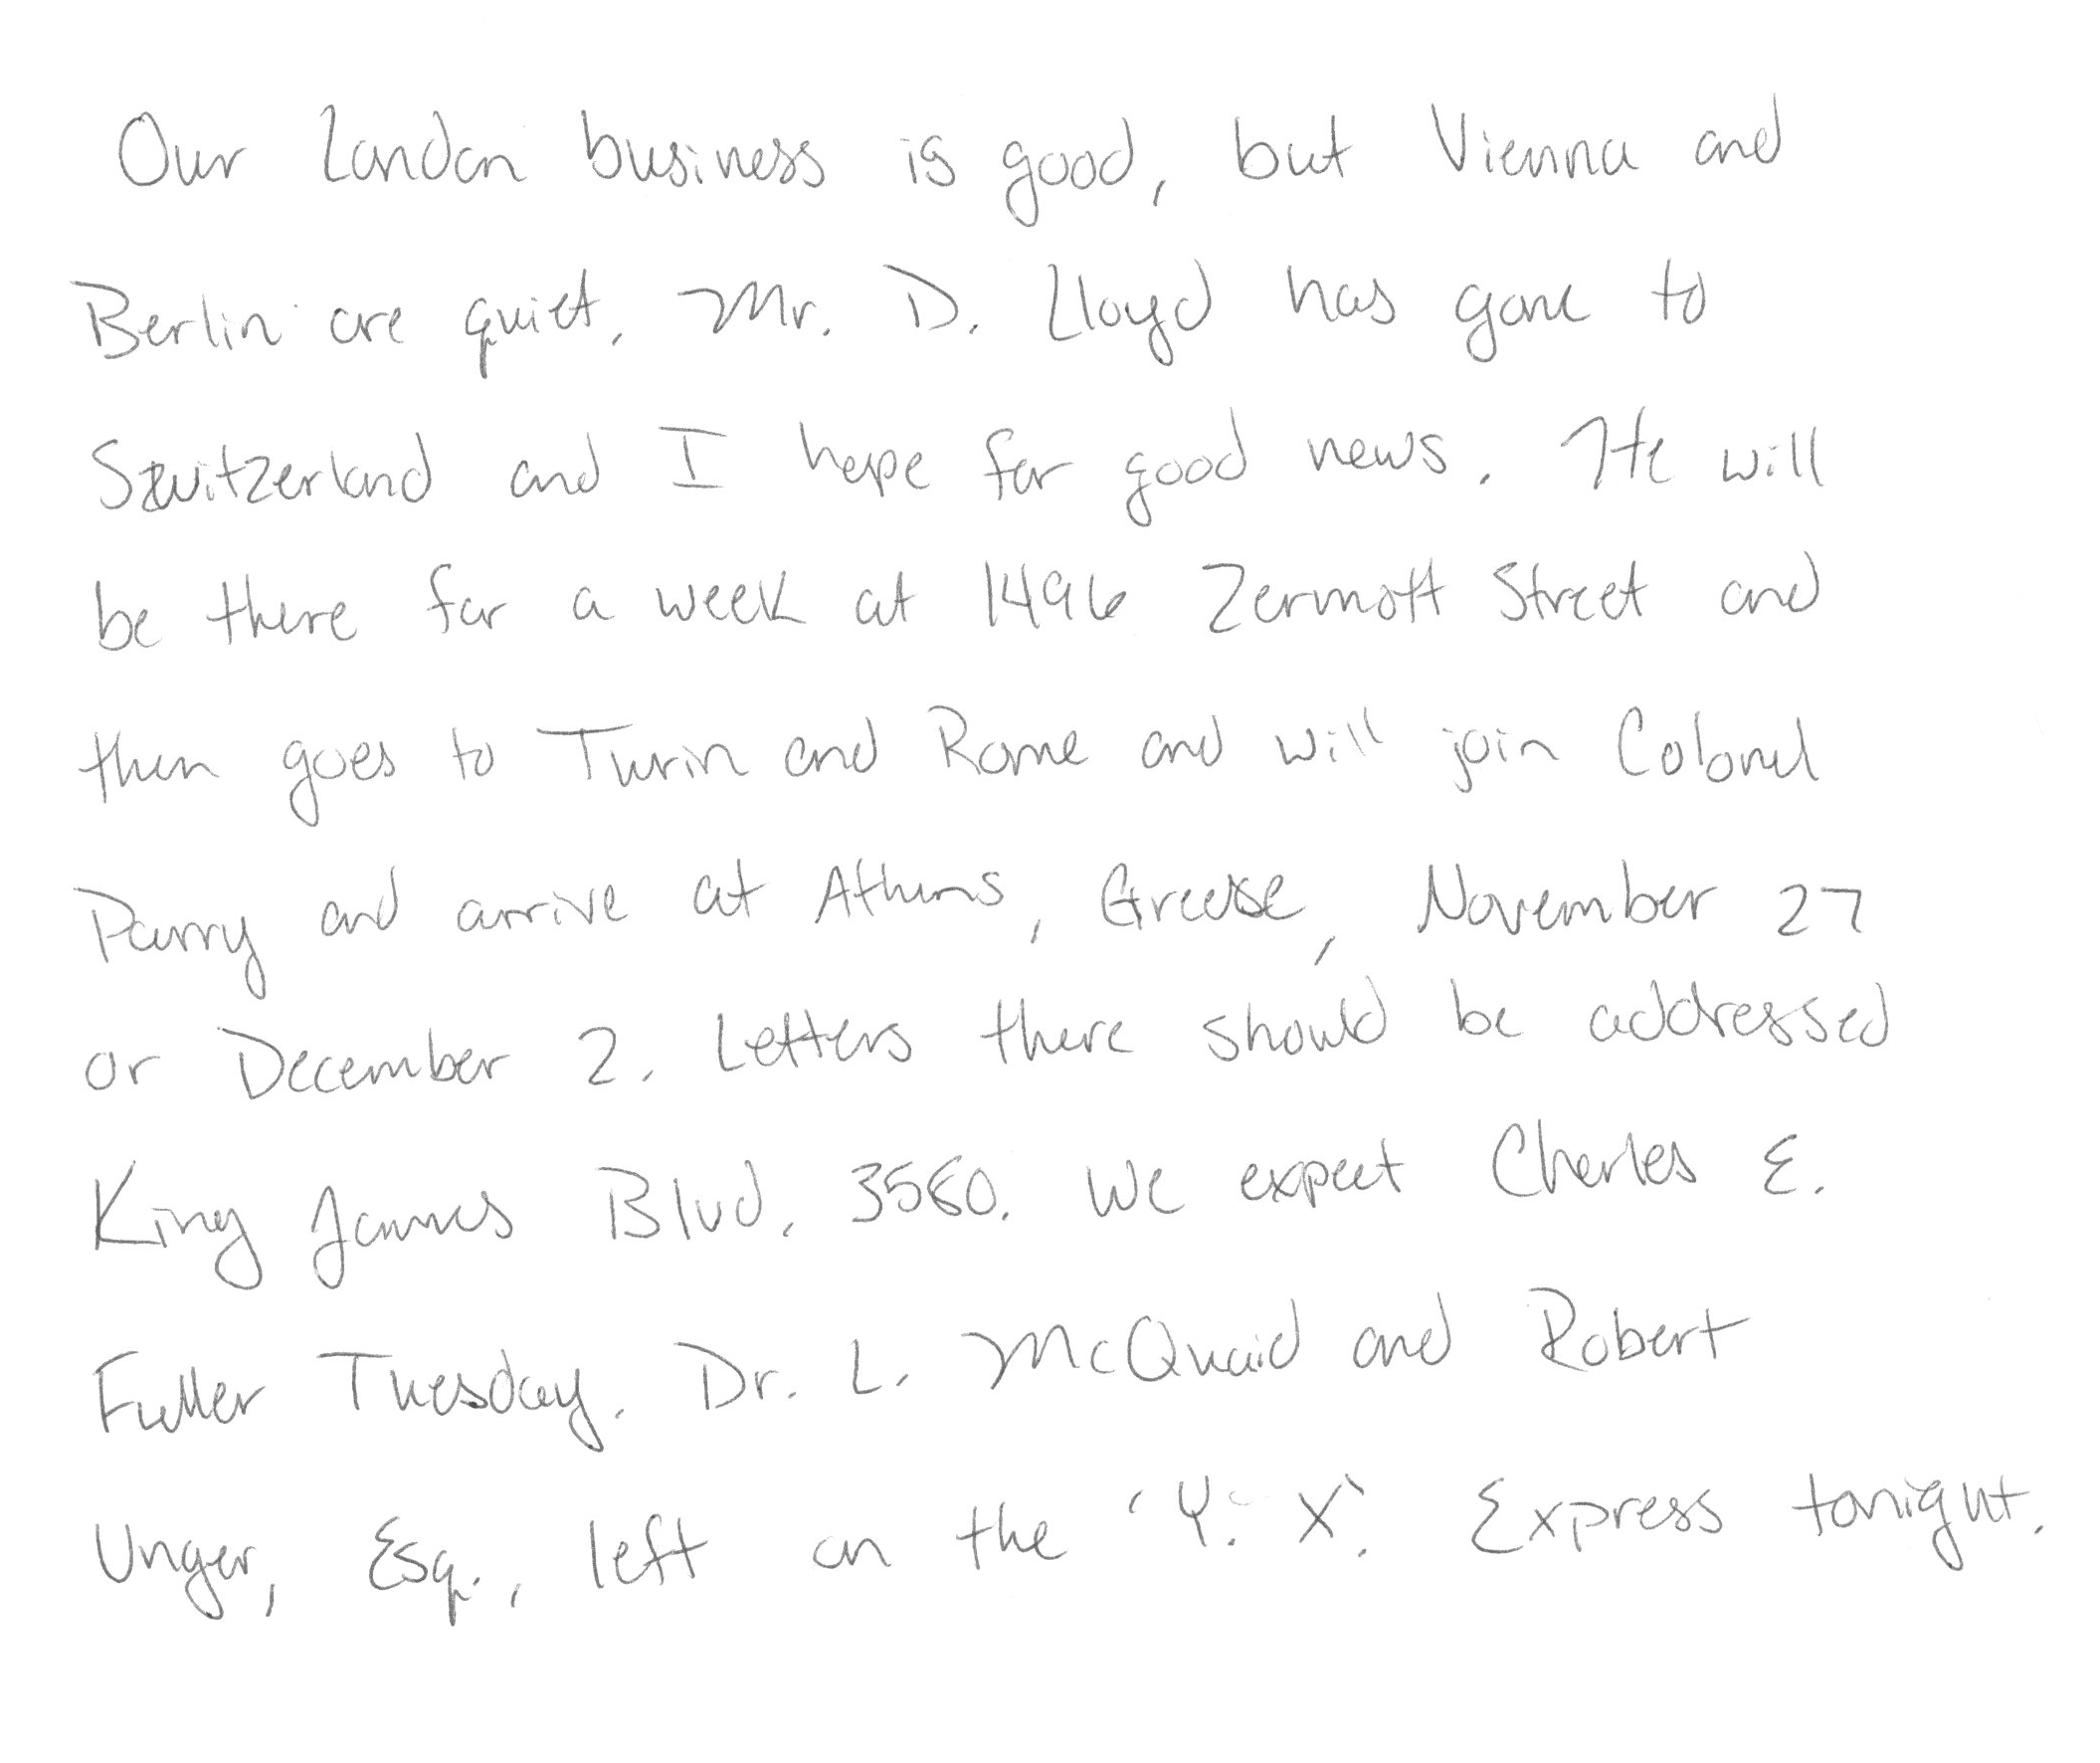 Our London business is good, but Vienna and
Berlin are quiet. Mr. D. Lloyd has gone to
Switzerland and I hope for good news. He will
be there for a week at 1496 Zermott Street and
then goes to Turin and Rome and will join Colonel
Parry and arrive at Athens, Greese, November 27
or December 2. Letters there should be addressed
King James Blvd. 3580. We expect Charles E.
Fuller Tuesday. Dr. L. McQuaid and Robert
Unger, Esq., left on the 'Y. X.' Express tonight.